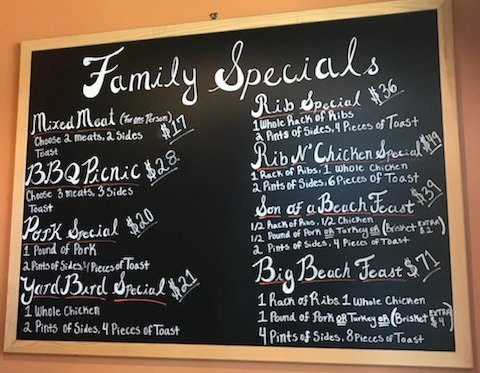 Family Specials
Mixed Meat (For One Person) $17
Choose 2 meats, 2 Sides
Toast
BBQ Picnic $28
Choose 3 meats, 3 Sides
Toast
Pork Special $20
1 Pound of Pork
2 Pints of Sides, 4 Pieces of Toast
Yard Burd Special $21
1 Whole Chicken
2 Pints of Sides, 4 Pieces of Toast
Rib Special $36
1 Whole Rack of Ribs
2 Pints of Sides, 4 Pieces of Toast
Rib N' Chicken Special $49
1 Rack of Ribs, 1 Whole Chicken
2 Pints of Sides, 6 Pieces of Toast
Son of a Beach Feast $39
1/2 Rack of Ribs, 1/2 Chicken
1/2 Pound of Pork OR Turkey OR (Brisket EXTRA $2)
2 Pints of Sides, 4 Pieces of Toast
Big Beach Feast $71
1 Rack of Ribs, 1 Whole Chicken
1 Pound of Pork OR Turkey OR (Brisket EXTRA $4)
4 Pints of Sides, 8 Pieces of Toast